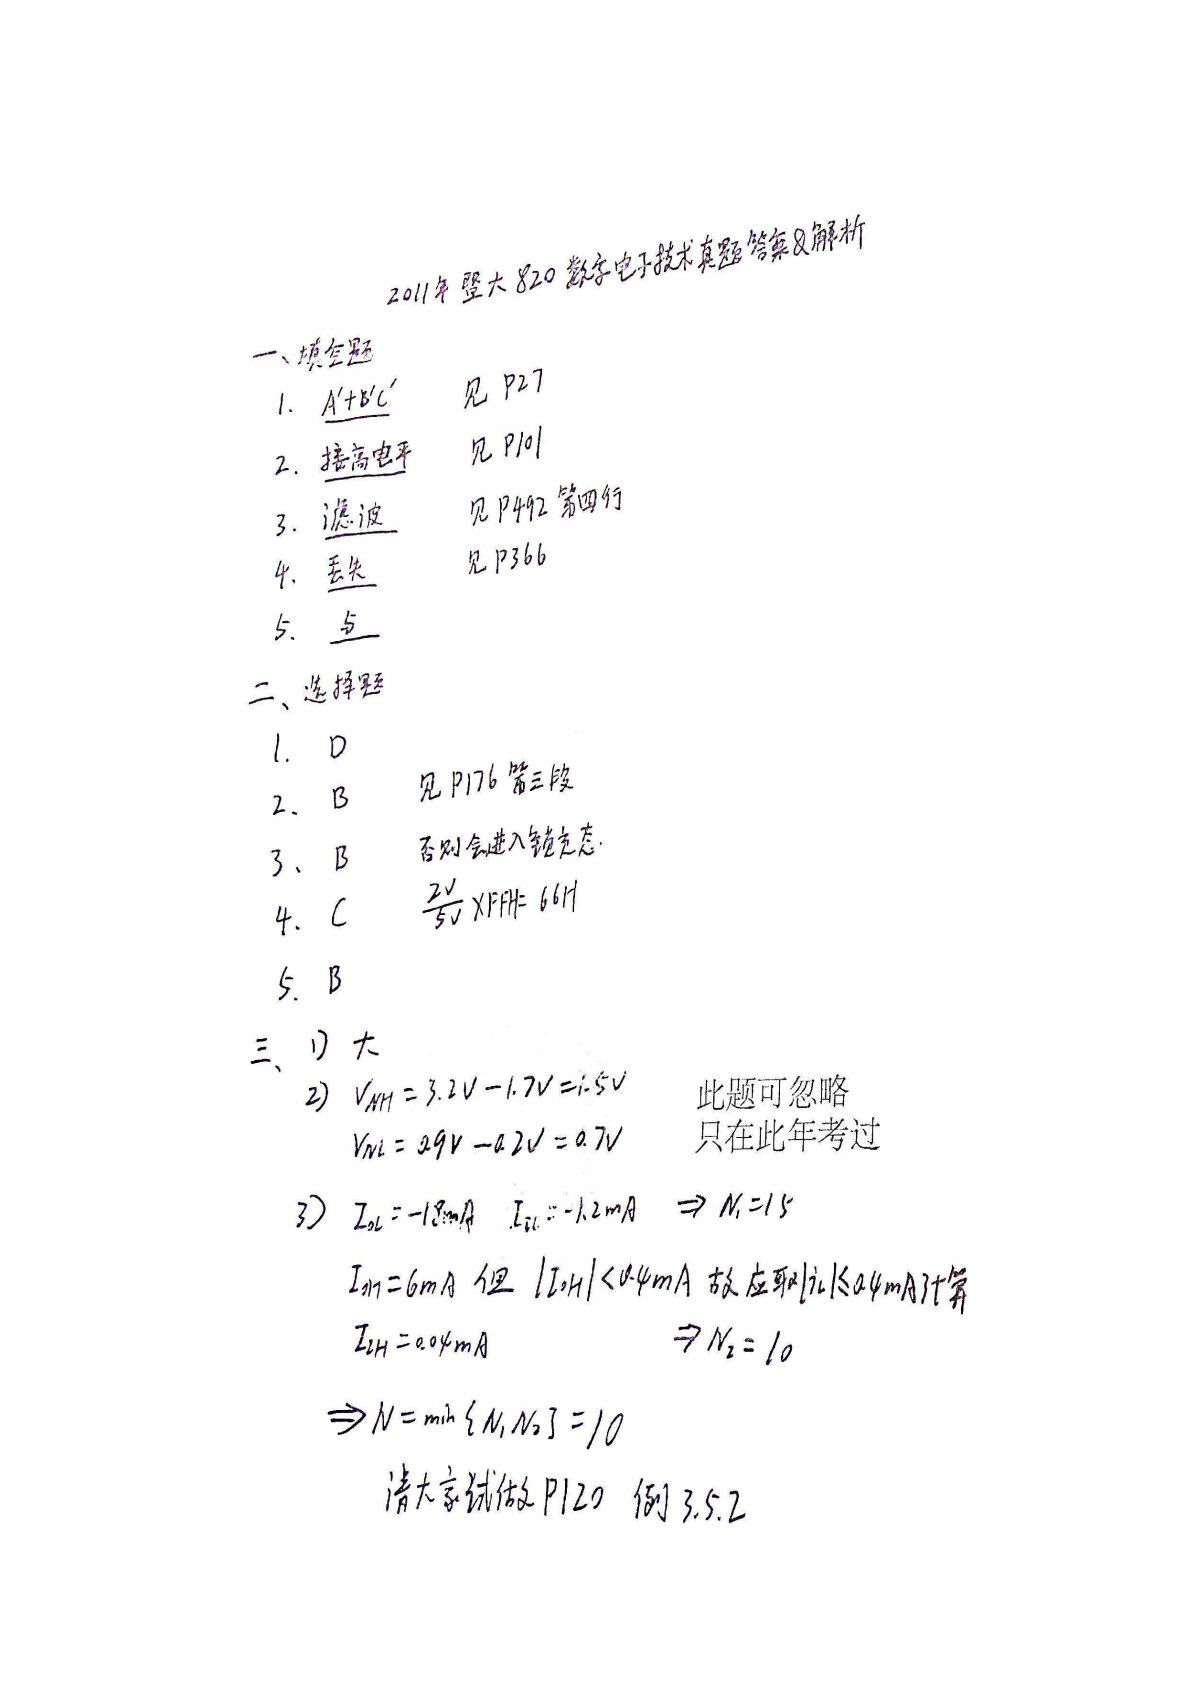 2011年暨大820数字电子技术真题答案&解析
一、填空题
1. A'+B'C' 见P27
2. 接高电平 见P101
3. 滤波 见P492第四行
4. 丢失 见P366
5. 与
二、选择题
1. D
2、 B 见P176第三段
3、 B 否则会进入锁定态.
4. C 2V/5V×FFH=66H
5. B
三、1) 大
2) VNH=3.2V-1.7V=1.5V 此题可忽略
VNL=0.9V-0.2V=0.7V 只在此年考过
3) IOL=-18mA IIL=-1.2mA ⇒N₁=15
IOH=6mA 但 |IOH|<0.4mA 故应取|iL|≤0.4mA计算
IIH=0.04mA ⇒N₂=10
⇒N=min{N₁N₂}=10
请大家试做P120 例3.5.2